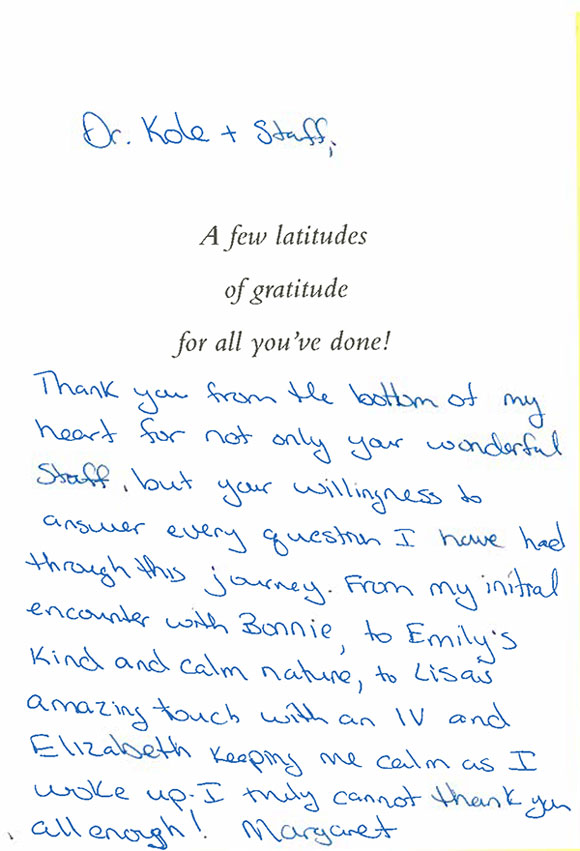 Dr. Kole + Staff,
A few latitudes
of gratitude
for all you've done!
Thank you from the bottom of my
heart for not only your wonderful
Staff, but your willingness to
answer every question I have had
through this journey. From my initial
encounter with Bonnie, to Emily's
kind and calm nature, to Lisa's
amazing touch with an IV and
Elizabeth keeping me calm as I
woke up. I truly cannot thank you
all enough! Margaret